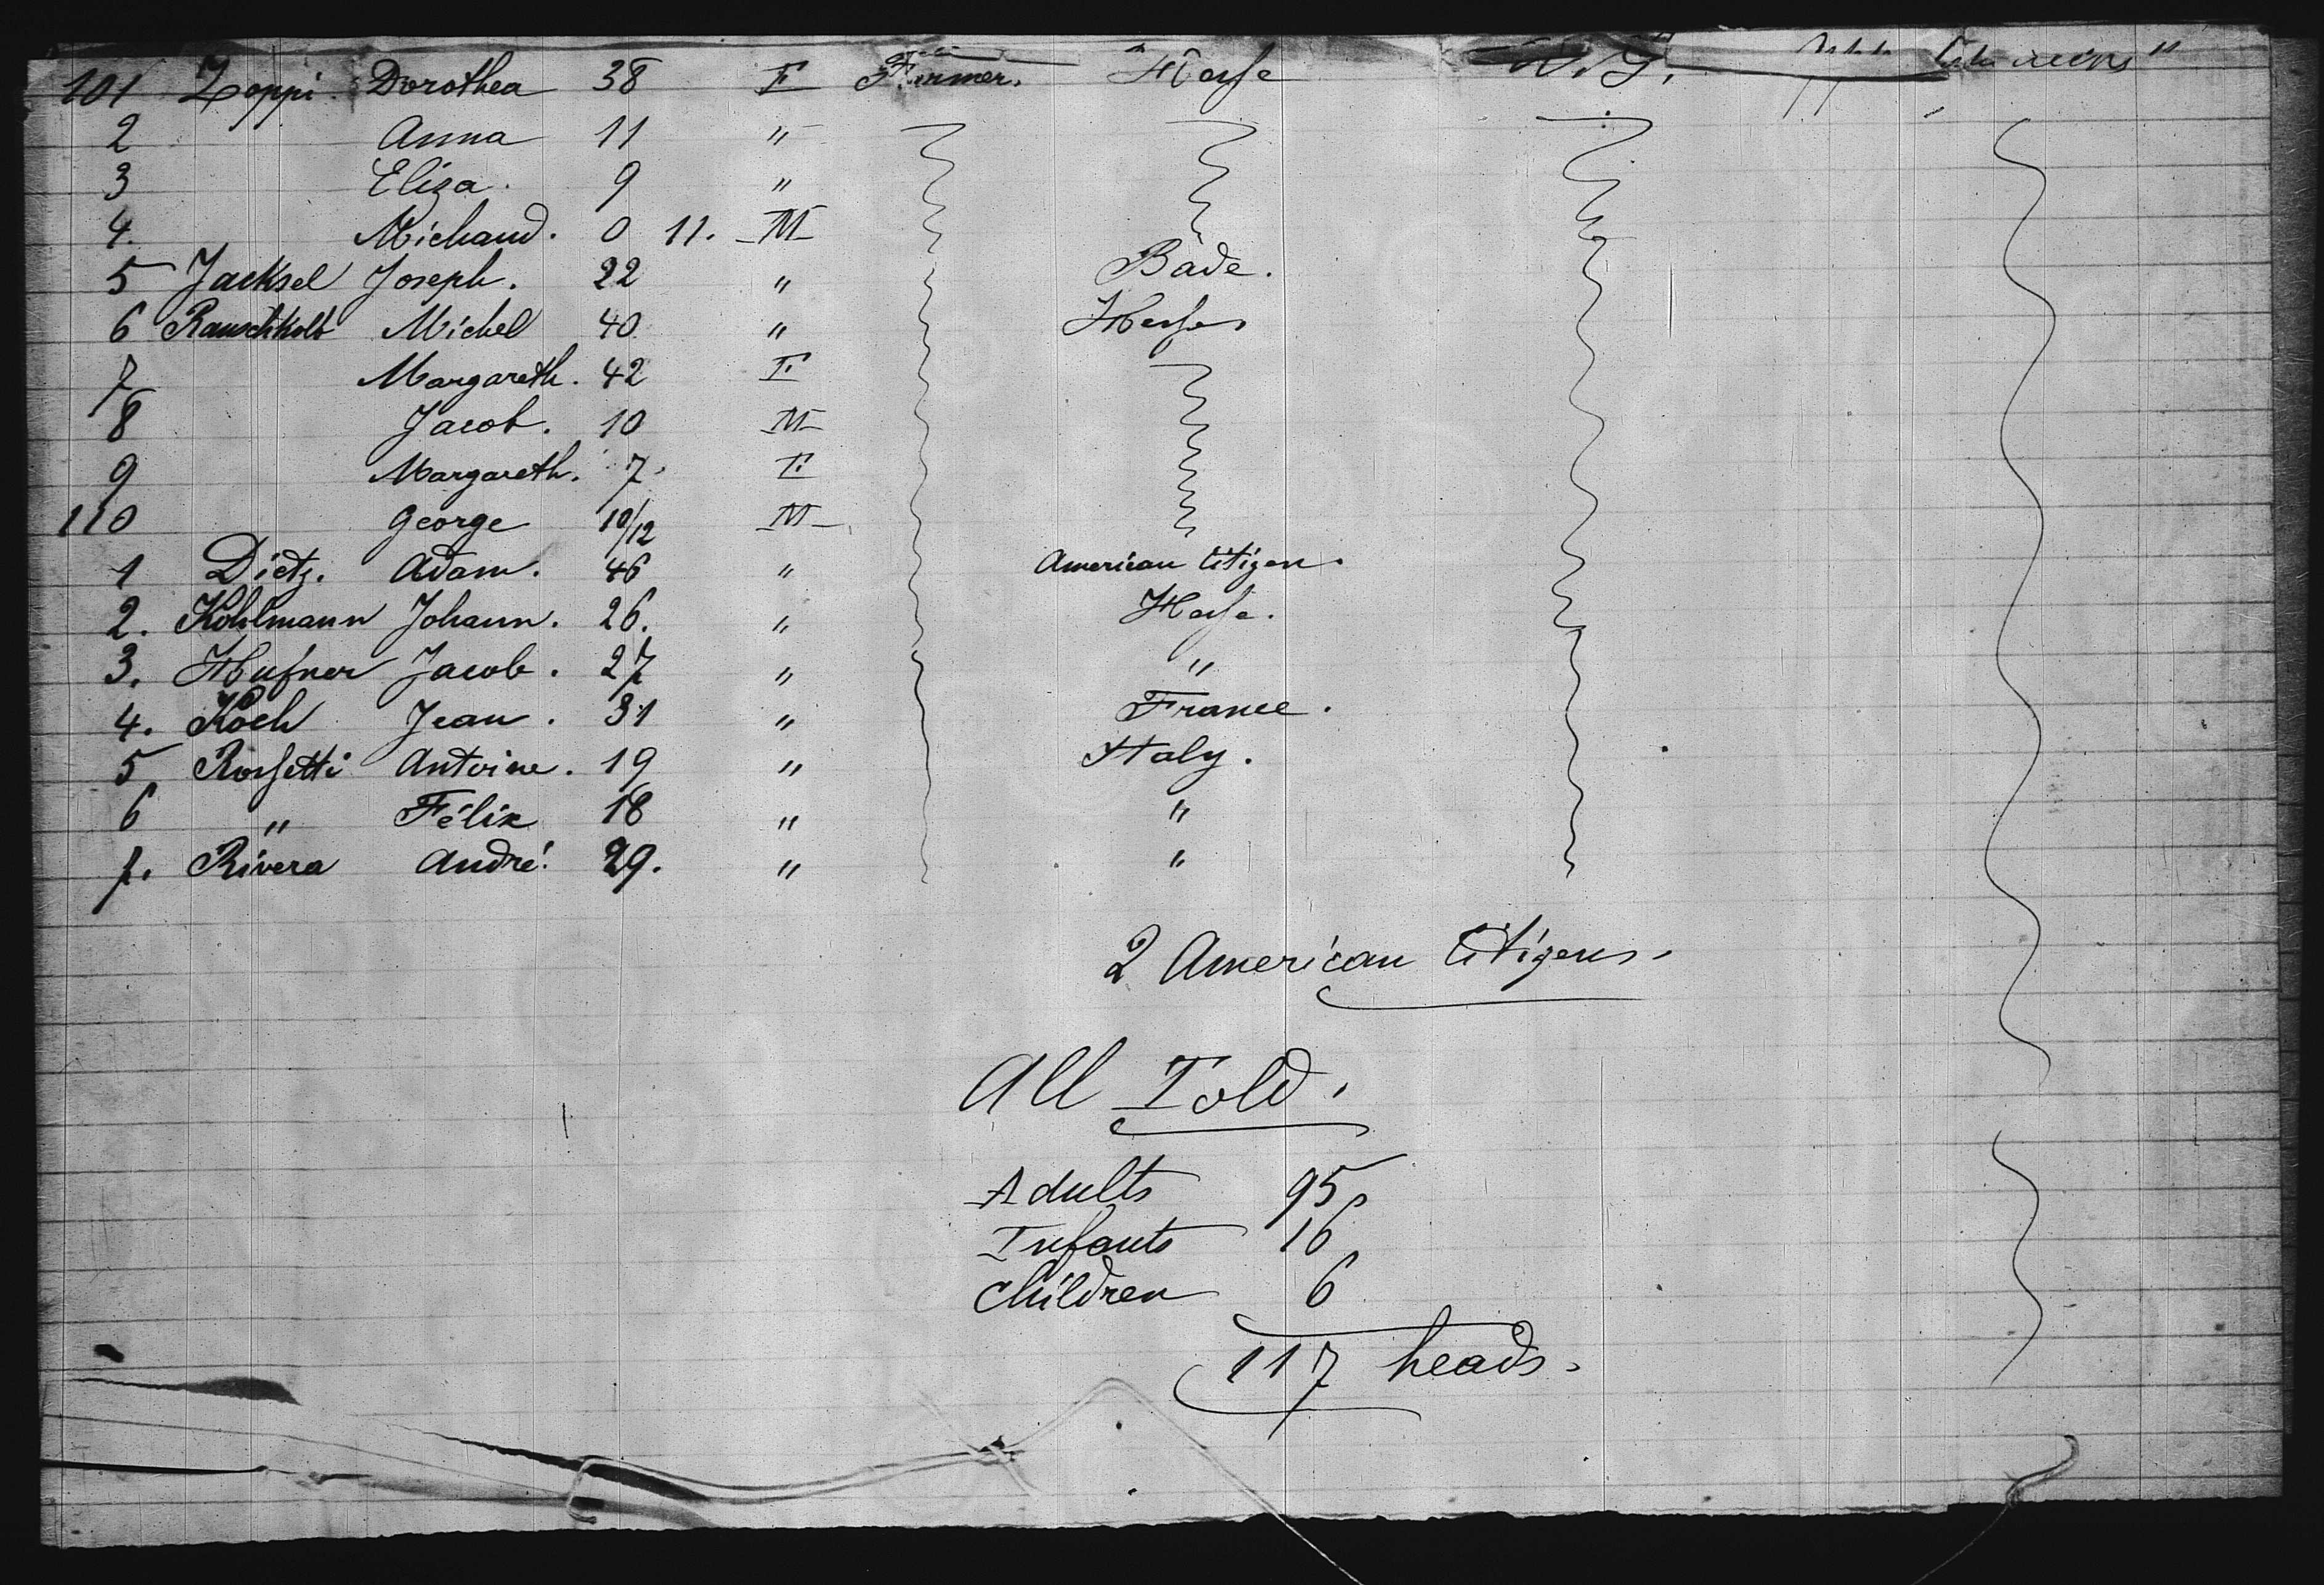 101 Zoppi Dorothea 38 F Farmer. Hesse
2 Anna 11 "
3 Eliza. 9 "
4. Michaud. 0 11. M
5 Jacksel Joseph. 22 " Bade.
6 Rauschkolb Michel 40 " Hesse
7 Margareth. 42 F.
8 Jacob. 10 M
9 Margareth. 7. F.
110 George 10/12 M
1 Dietz. Adam. 46 " American Citizen.
2. Kohlmann Johann. 26. " Hesse.
3. Hufner Jacob. 27 " "
4. Koch Jean. 31 " France.
5 Rossetti Antoine. 19 " Italy.
6 " Félix 18 " "
7. Rivera André. 29. " "
2 American Citizens.
All Told.
Adults 95
Infants 16
Children 6
117 heads.